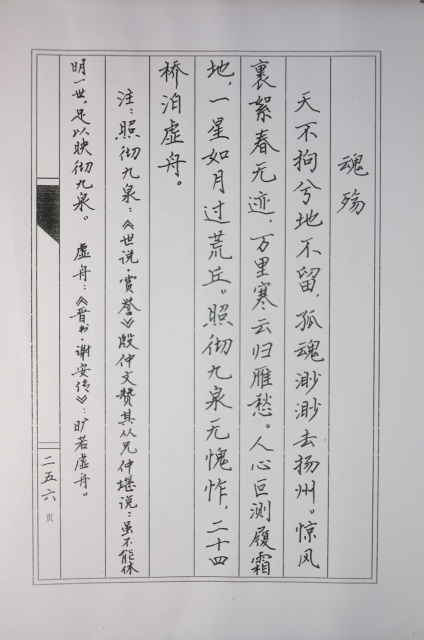 魂殇
天不拘兮地不留，孤魂渺渺去扬州。惊风
裹絮春无迹，万里寒云归雁愁。人心叵测履霜
地，一星如月过荒丘。照彻九泉无愧怍，二十四
桥泊虚舟。
注：照彻九泉：《世说·赏誉》殷仲文赞其从兄仲堪说：虽不能休
明一世，足以映彻九泉。 虚舟：《晋书·谢安传》：旷若虚舟。
二五六页